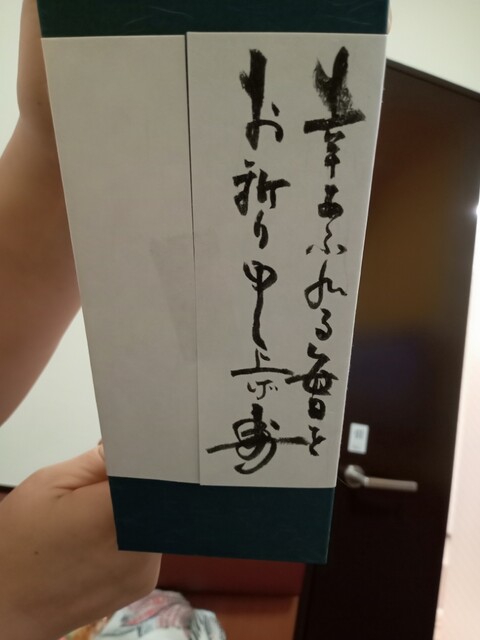 幸あふれる毎日を
お祈り申し上げ寿